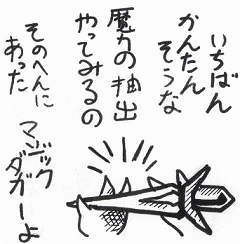 いちばん
かんたん
そうな
魔力の抽出
やってみるの
そのへんに
あった
マジック
ダガーよ